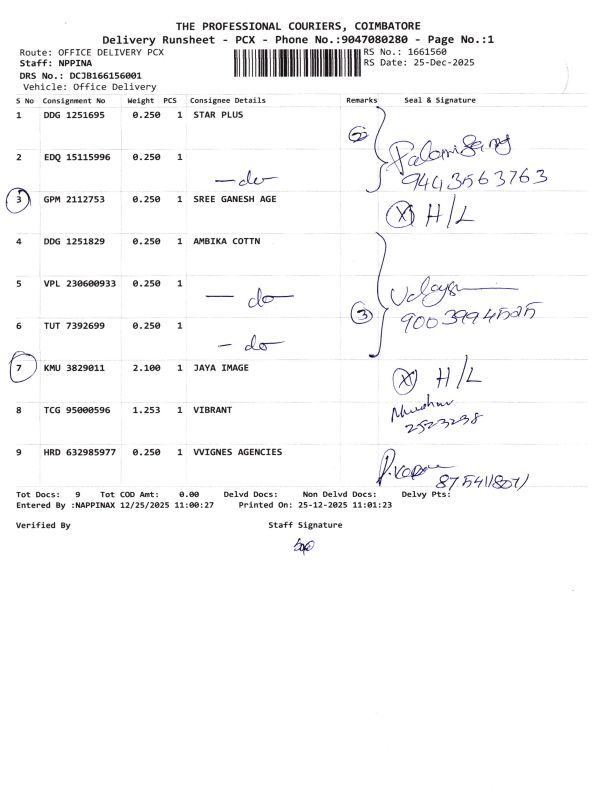 THE PROFESSIONAL COURIERS, COIMBATORE
Delivery Runsheet - PCX - Phone No.:9047080280 - Page No.:1
Route: OFFICE DELIVERY PCX RS No.: 1661560
Staff: NPPINA RS Date: 25-Dec-2025
DRS No.: DCJB166156001
Vehicle: Office Delivery
S No Consignment No Weight PCS Consignee Details Remarks Seal & Signature
1 DDG 1251695 0.250 1 STAR PLUS
2
2 EDQ 15115996 0.250 1
— do — 9443563763
3 GPM 2112753 0.250 1 SREE GANESH AGE
X H/L
4 DDG 1251829 0.250 1 AMBIKA COTTN
5 VPL 230600933 0.250 1
— do —
3 9003994525
6 TUT 7392699 0.250 1
— do —
7 KMU 3829011 2.100 1 JAYA IMAGE
X H/L
8 TCG 95000596 1.253 1 VIBRANT
2523238
9 HRD 632985977 0.250 1 VVIGNES AGENCIES
Tot Docs: 9 Tot COD Amt: 0.00 Delvd Docs: Non Delvd Docs: Delvy Pts:
Entered By :NAPPINAX 12/25/2025 11:00:27 Printed On: 25-12-2025 11:01:23
Verified By Staff Signature